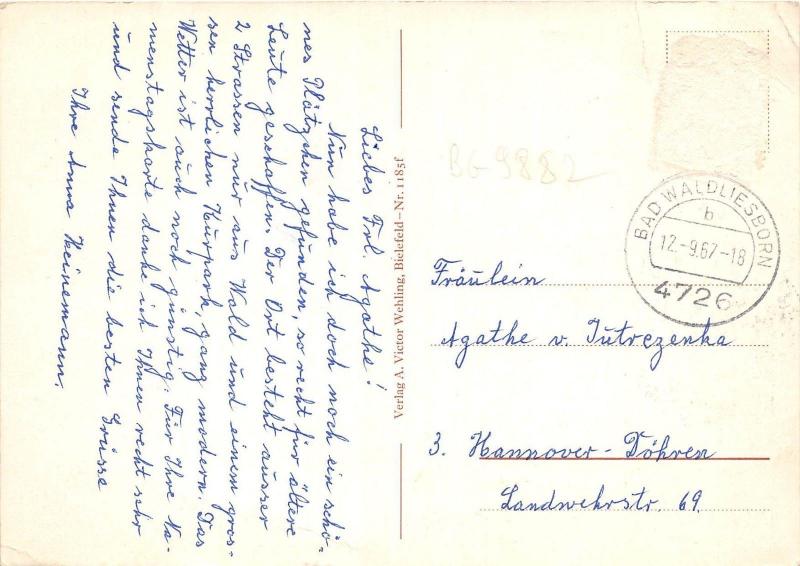 Liebes Frl. Agathe!
Nun habe ich doch noch ein schö-
nes Plätzchen gefunden, so recht für ältere
Leute geschaffen. Der Ort besteht ausser
2 Strassen nur aus Wald und einem gros-
sen herrlichen Kurpark, ganz modern. Das
Wetter ist auch noch günstig. Für Ihre Na-
menstagskarte danke ich Ihnen recht sehr
und sende Ihnen die besten Grüsse
Ihre Anna Heinemann.
Verlag A. Victor Wehling, Bielefeld – Nr. 1185f
BG-9882
BAD WALDLIESBORN
b
12.-9.67-18
4726
Fräulein
Agathe v. Jutrczenka
3. Hannover-Döhren
Landwehrstr. 69.